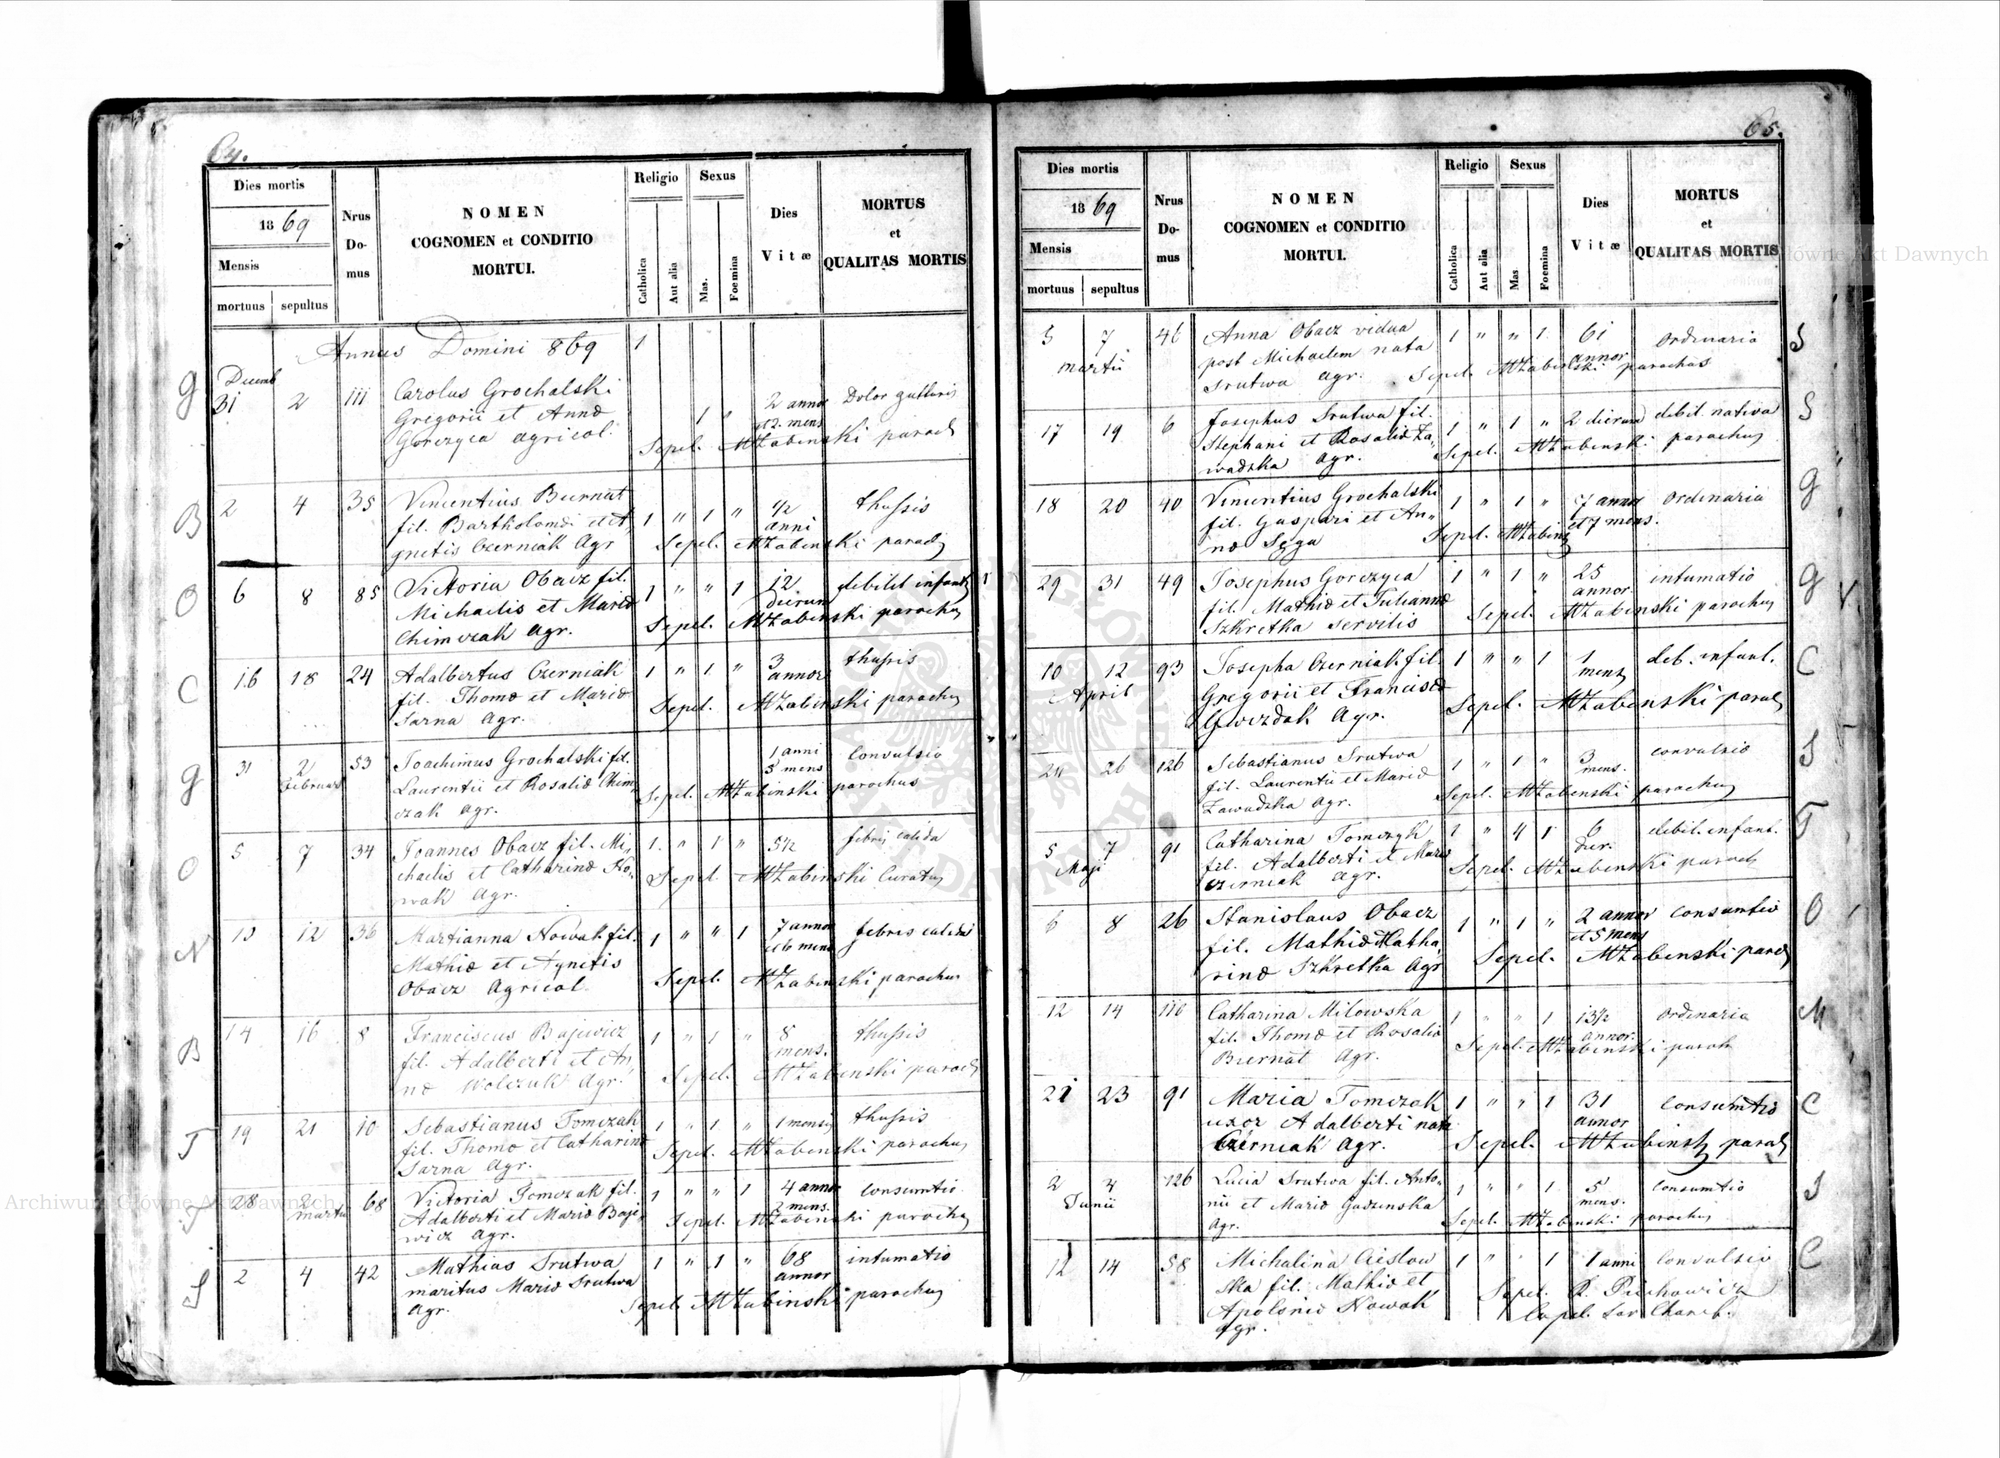 64.
Dies mortis
1869
Mensis
mortuus sepultus
Nrus
Do-
mus
NOMEN
COGNOMEN et CONDITIO
MORTUI.
Religio
Catholica
Aut alia
Sexus
Mas.
Foemina
Dies
Vitæ
MORTUS
et
QUALITAS MORTIS
Annus Domini 869 1
G Decemb
31 2 111 Carolus Grochalski 2 annor Dolor gutturis
Gregorii et Annæ 1 " et 2. mens
Gorczyca agricol. Sepel. MZabinski paroch
B 2 4 35 Vincentius Biernat 1 " 1 " 1/2 thussis
fil. Bartholomæi et A anni
gnetis Czerniak Agr Sepel. MZabinski paroch
O 6 8 85 Victoria Obacz fil. 1 " " 1 12 debilit infant
Michaelis et Mariæ dierum
Chimczak Agr. Sepel. MZabinski parochus
C 16 18 24 Adalbertus Czerniak 1 " 1 " 3 thussis
fil. Thomæ et Mariæ annor
Sarna Agr. Sepel. MZabinski parochus
G 31 2 53 Joachimus Grochalski fil. 1 anni Convulsio
Februar Laurentii et Rosaliæ Chim, 5 mens
czak agr. Sepel. MZabinski parochus
O 5 7 34 Joannes Obacz fil. Mi, 1. " 1 " 5 1/2 febris calida
chaelis et Catharinæ No,
wak Agr. Sepel. MZabinski Curatus
N 10 12 36 Martianna Nowak fil. 1 " " 1 7 annor febris calida
Mathiæ et Agnetis et 6 mens
Obacz Agricol. Sepel. MZabinski parochus
B 14 16 8 Franciscus Bajewicz 1 " 1 " 8 thussis
fil. Adalberti et An mens.
næ Wolczuk Agr. Sepel. MZabinski paroch
T 19 21 10 Sebastianus Tomczak 1 " 1 " 1 mensis thussis
fil. Thomæ et Catharinæ
Sarna Agr. Sepel. MZabinski parochus
T 28 2 68 Victoria Tomczak fil. 1 " " 1 4 annor Consumtio
martii Adalberti et Mariæ Baje, 2 mens.
wicz Agr. Sepel. MZabinski parochus
S 2 4 42 Mathias Srutwa 1 " 1 " 68 intumatio
maritus Mariæ Srutwa annor
Agr. Sepel MZabinski parochus
65.
Dies mortis
1869
Mensis
mortuus sepultus
Nrus
Do-
mus
NOMEN
COGNOMEN et CONDITIO
MORTUI.
Religio
Catholica
Aut alia
Sexus
Mas
Foemina
Dies
Vitæ
MORTUS
et
QUALITAS MORTIS
5 7 46 Anna Obacz vidua 1 " " 1 61 Ordinaria S
martii post Michaelem nata annor
Srutwa Agr. Sepel MZabinski parochus
17 19 6 Josephus Srutwa fil. 1 " 1 " 2 dierum debil. nativa S
Stephani et Rosaliæ Za,
wadzka Agr. Sepel. MZabinski parochus
18 20 40 Vincentius Grochalski 1 " 1 " 7 annor Ordinaria G
fil. Gaspari et An" et 7 mens.
næ Sęga Sepel. MZabins
29 31 49 Josephus Gorczyca 1 " 1 " 25 intumatio G
fil. Mathiæ et Juliannæ annor
Szkretka servilis Sepel. MZabinski parochus
10 12 93 Josepha Czerniak fil 1 " " 1 1 deb. infant. C
April Gregorii et Francisæ mens
Gwizdak Agr. Sepel MZabinski paroch
24 26 126 Sebastianus Srutwa 1 " 1 " 3 Convulsio S
fil. Laurentii et Mariæ mens.
Zawadzka Agr. Sepel. MZabinski parochus
5 7 91 Catharina Tomczyk 1 " " 1 6 debil. infant. T
Maji fil. Adalberti et Mariæ dier.
Czerniak Agr. Sepel. MZabinski paroch
6 8 26 Stanislaus Obacz 1 " 1 " 2 annor Consumtio O
fil. Mathiæ et Catha, et 5 mens
rinæ Szkretka Agr Sepel. MZabinski paroch
12 14 110 Catharina Milowska 1 " " 1 13 1/2 Ordinaria M
fil. Thomæ et Rosaliæ annor.
Biernat Agr. Sepel. MZabinski paroch
21 23 91 Maria Tomczak 1 " " 1 31 Consumtio C
uxor Adalberti nata annor
Czerniak Agr. Sepel. MZabinski paroch
2 4 126 Lucia Srutwa fil. Anto- 1 " " 1 5 Consumtio S
Junii nii et Mariæ Gadzinska mens.
Agr. Sepel. MZabinski parochus
12 14 58 Michalina Cieslow 1 " " 1 1 anni Convulsio C
ska fil. Mathiæ et Sepel.
Apoloniæ Nowak Capel.
Agr.
Archiwum Główne Akt Dawnych
Archiwum Główne Akt Dawnych